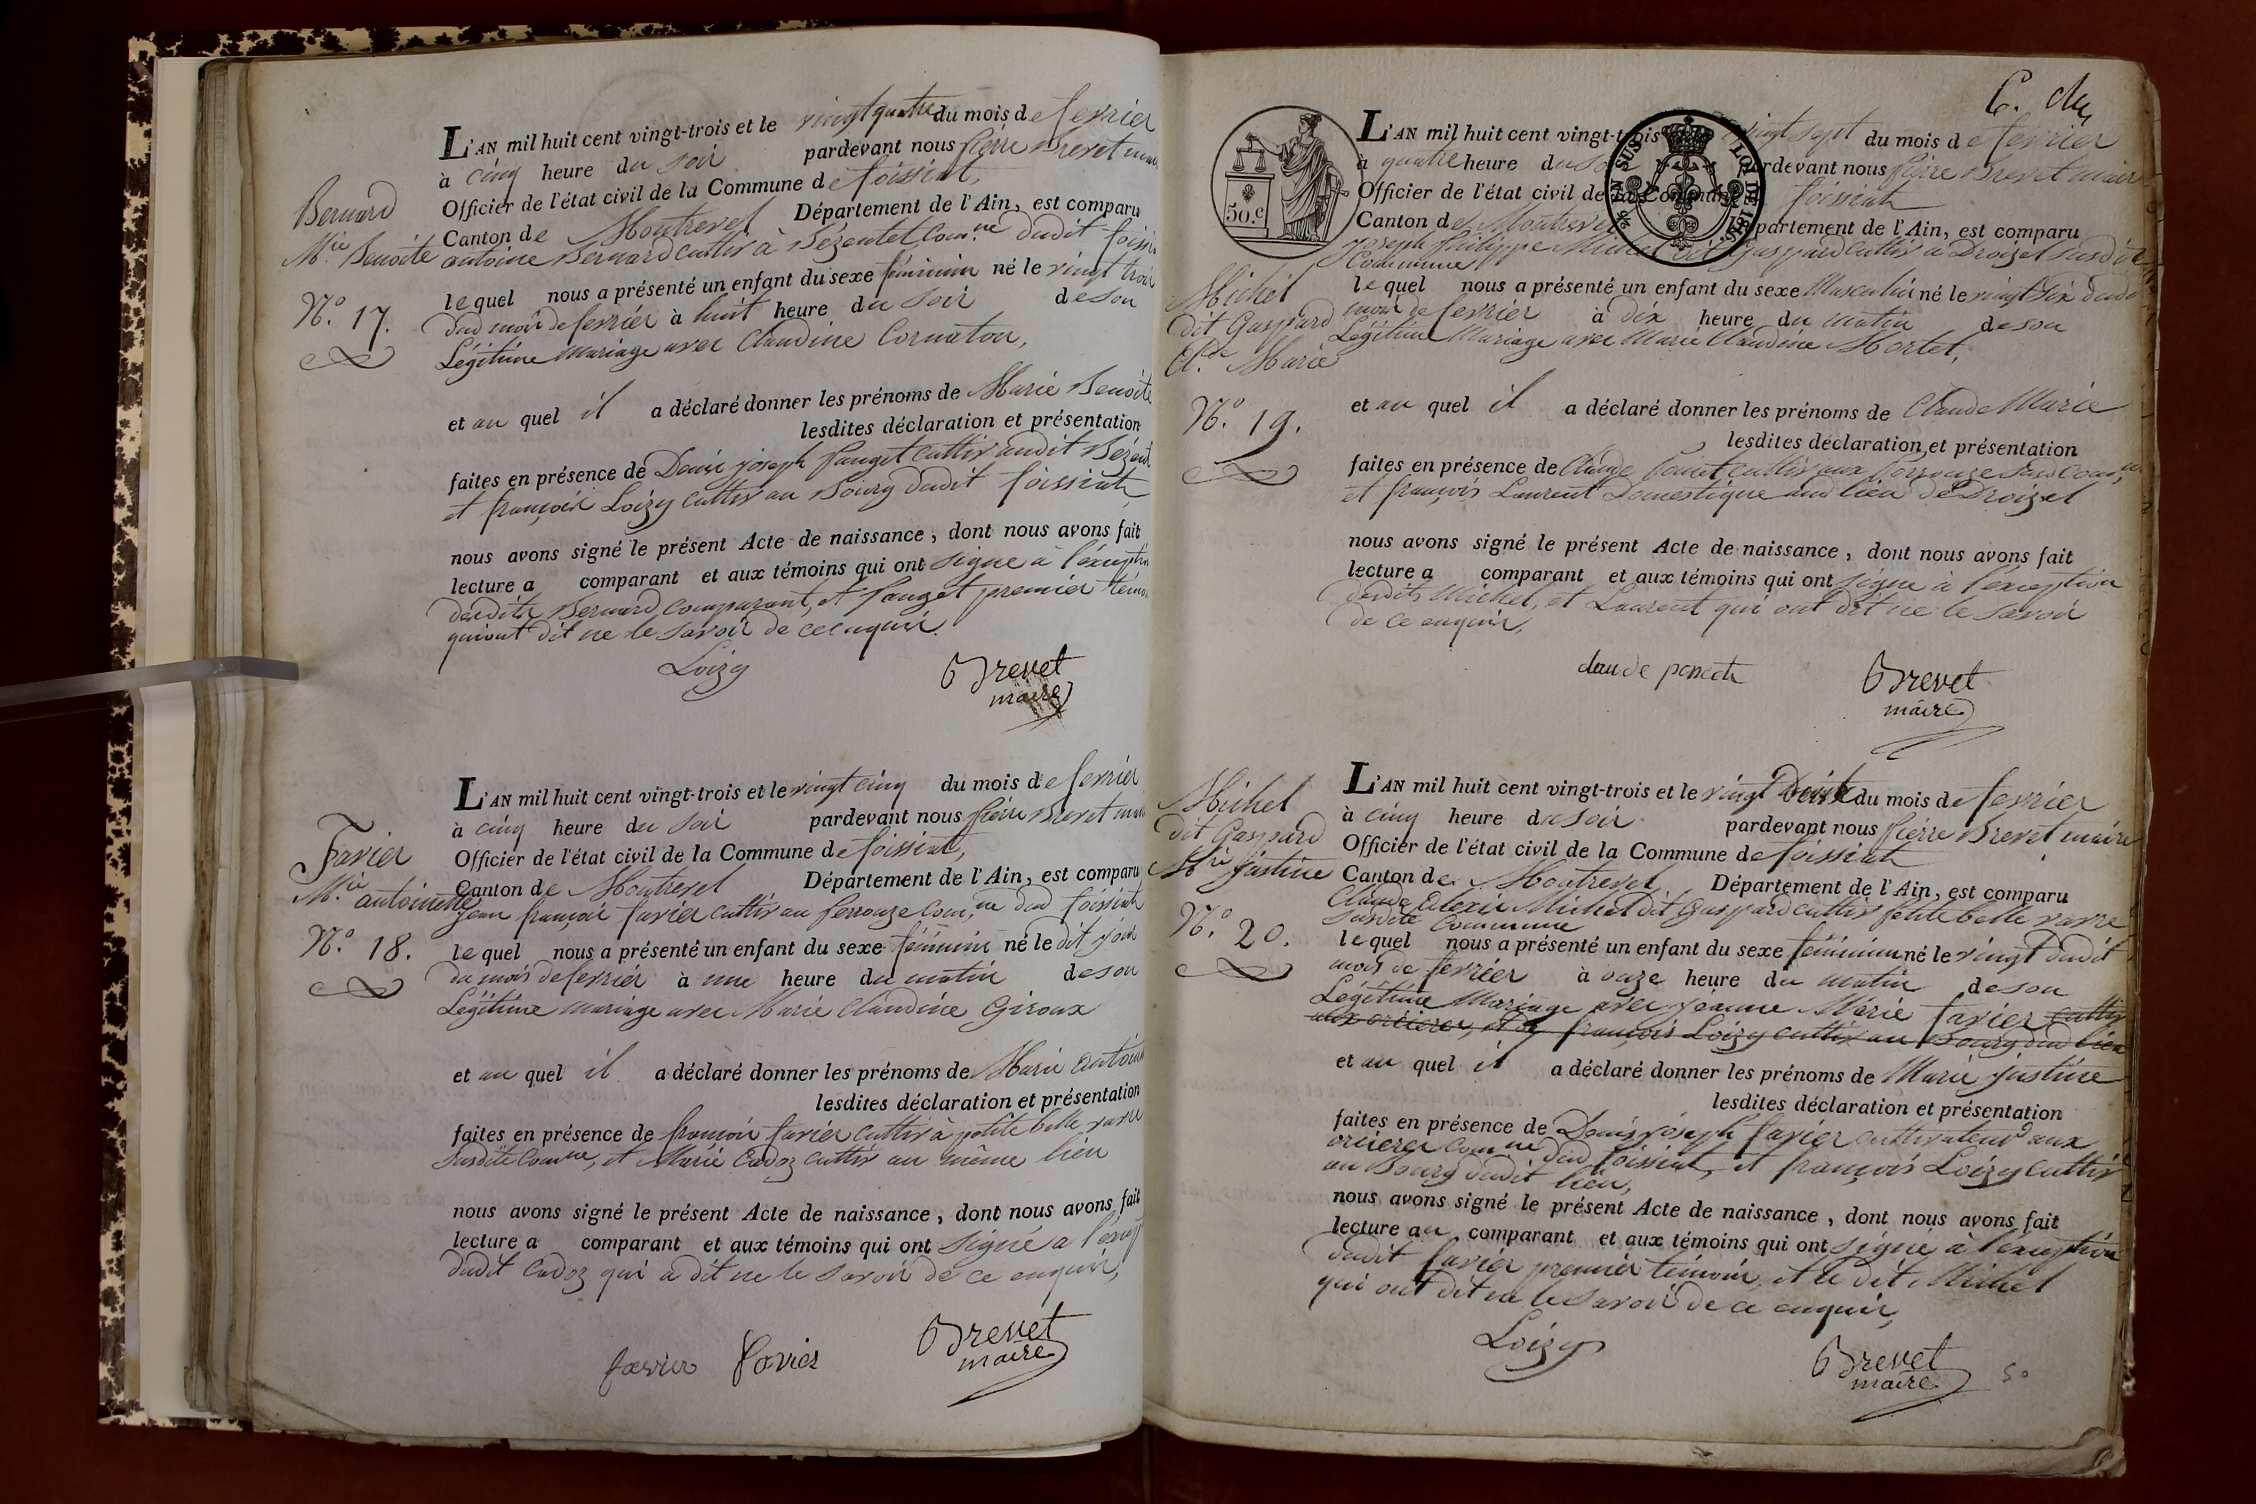 L'AN mil huit cent vingt-trois et le vingt quatre du mois de fevrier
à cinq heure du soir pardevant nous pierre Brevet maire
Officier de l'état civil de la Commune de foissiat,
Canton de Montrevel Département de l'Ain, est comparu
antoine Bernard cultivr à Bézentet com.ne dudit foissiat
lequel nous a présenté un enfant du sexe féminin né le vingt trois
dud mois de fevrier à huit heure du soir de son
Légitime mariage avec Claudine Cornaton,
Bernard
M.ie Benoite
N.o 17.
et au quel il a déclaré donner les prénoms de Marie Benoite
lesdites déclaration et présentation
faites en présence de Denis joseph fauget cultivr audit Bézent
et françois Loizy cultivr au Bourg dudit foissiat,
nous avons signé le présent Acte de naissance, dont nous avons fait
lecture a comparant et aux témoins qui ont signé à l'exception
desdits Bernard comparant, et fauget premier témoin
qui ont dit ne le savoir de ce enquir.
Loizy Brevet
maire
L'AN mil huit cent vingt-trois et le vingt cinq du mois de fevrier
à cinq heure du soir pardevant nous pierre Brevet maire
Officier de l'état civil de la Commune de foissiat,
Canton de Montrevel Département de l'Ain, est comparu
jean françois favier cultivr au ferrouze com.ne dud foissiat
lequel nous a présenté un enfant du sexe féminin né le dit jour
du mois de fevrier à une heure du matin de son
Légitime mariage avec Marie Claudine Giroux
Favier
M.ie antoinette
N.o 18.
et au quel il a déclaré donner les prénoms de Marie antoin
lesdites déclaration et présentation
faites en présence de françois favier cultivr à petite belle varre
susdite com.ne, et Marie Cadoz cultivr au même lieu
nous avons signé le présent Acte de naissance, dont nous avons fait
lecture a comparant et aux témoins qui ont signé a l'excep
dudit Cadoz qui a dit ne le savoir de ce enquir,
favier favier Brevet
maire
C. du
50.c
25 EN SUS LOI DE 1816
L'AN mil huit cent vingt-trois vingt sept du mois de fevrier
à quatre heure du soir pardevant nous pierre Brevet maire
Officier de l'état civil de la Commune foissiat
Canton de Montrevel Département de l'Ain, est comparu
joseph philippe Michel dit Gaspard cultivr a Droizet susdite
Commune
lequel nous a présenté un enfant du sexe Masculin né le vingt six dudit
mois de fevrier à dix heure du matin de son
Légitime Mariage avec Marie Claudine Mortet,
Michel
dit Gaspard
Cl.de Marie
N.o 19.
et au quel il a déclaré donner les prénoms de Claude Marie
lesdites déclaration et présentation
faites en présence de Claude cultivr aux ferrouze susd com.ne
et françois Laurent Domestique aud lieu de Droizet
nous avons signé le présent Acte de naissance, dont nous avons fait
lecture a comparant et aux témoins qui ont signé à l'exception
desdits Michel, et Laurent qui ont dit ne le savoir
de ce enquir,
claude Brevet
maire
L'AN mil huit cent vingt-trois et le vingt du mois de fevrier
à cinq heure du soir pardevant nous pierre Brevet maire
Officier de l'état civil de la Commune de foissiat
Canton de Montrevel Département de l'Ain, est comparu
Claude Alexis Michel dit Gaspard cultivr petite belle varre
susdite Commune
lequel nous a présenté un enfant du sexe féminin né le vingt dudit
mois de fevrier à onze heure du matin de son
Légitime Mariage avec jeanne Marie favier cultivr
aux orcieres, et de françois Loizy cultivr au Bourg dud lieu
Michel
dit Gaspard
M.rie justine
N.o 20.
et au quel il a déclaré donner les prénoms de Marie justine
lesdites déclaration et présentation
faites en présence de Denis joseph favier cultivateur aux
orcieres com.ne dud foissiat, et françois Loizy cultivr
au Bourg dudit lieu,
nous avons signé le présent Acte de naissance, dont nous avons fait
lecture au comparant et aux témoins qui ont signé à l'exception
dudit favier premier témoin, et le dit Michel
qui ont dit ne le savoir de ce enquir,
Loizy Brevet
maire